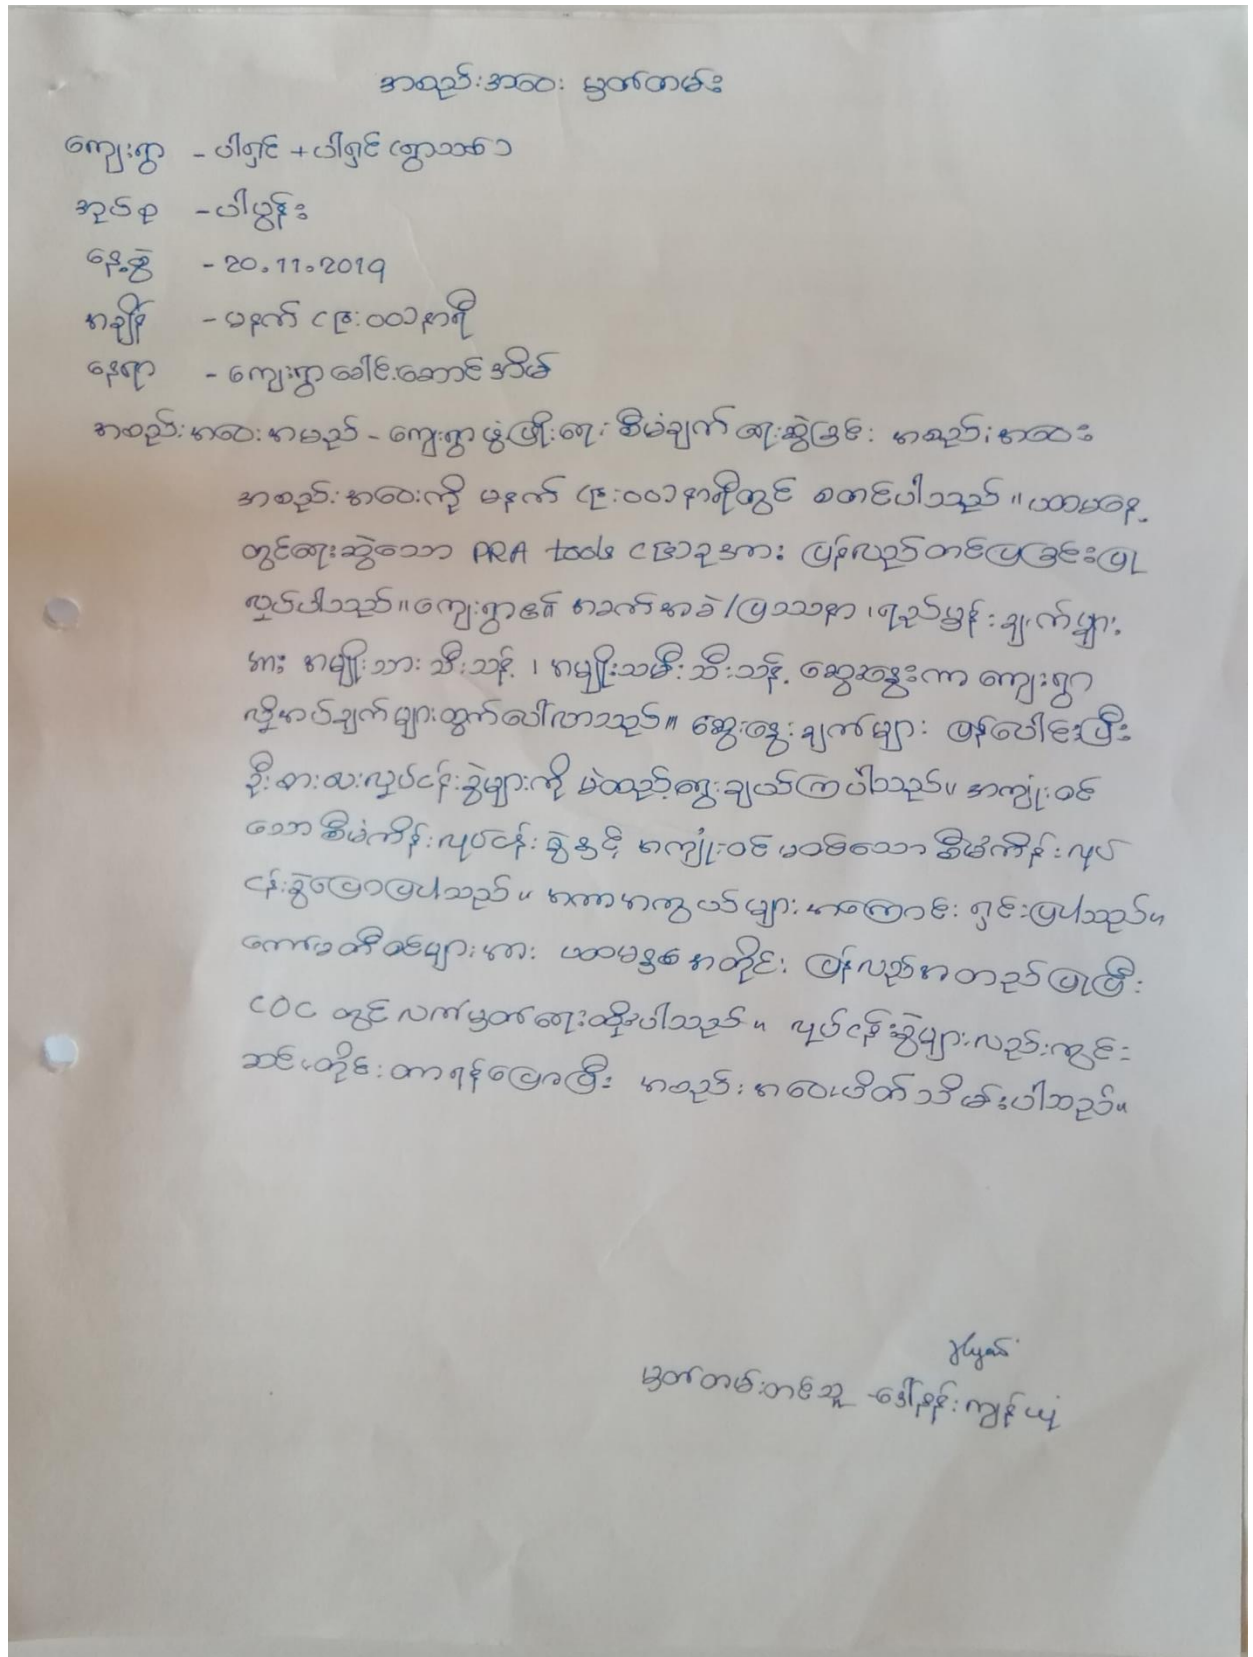 အစည်းအဝေး မှတ်တမ်း
ကျေးရွာ - ပါရှင် + ပါရှင် (ရွာသစ်)
အုပ်စု - ပါပွန်း
နေ့စွဲ - 20.11.2019
အချိန် - မနက် (၉:၀၀) နာရီ
နေရာ - ကျေးရွာခေါင်းဆောင်အိမ်
အစည်းအဝေးအမည် - ကျေးရွာဖွံ့ဖြိုးရေး စီမံချက် ရေးဆွဲခြင်း အစည်းအဝေး
အစည်းအဝေးကို မနက် (၉:၀၀) နာရီတွင် စတင်ပါသည်။ ယာမနေ့
တွင်ရေးဆွဲသော PRA tools ခုအား ပြန်လည်တင်ပြခြင်းပြု
လုပ်ပါသည်။ ကျေးရွာ၏ အခက်အခဲ/ပြဿနာ၊ ရည်မှန်းချက်များ
အား အမျိုးသားသီးသန့်၊ အမျိုးသမီးသီးသန့် ဆွေးနွေးကာ ကျေးရွာ
လိုအပ်ချက်များထွက်ပေါ်လာသည်။ ဆွေးနွေးချက်များ ပြန်ပေါင်းပြီး
ဦးစားပေးလုပ်ငန်းခွဲများကို မဲထည့်ရွေးချယ်ကြပါသည်။ အကျုံးဝင်
သောစီမံကိန်းလုပ်ငန်းခွဲနှင့် အကျုံးဝင်မဝင်သောစီမံကိန်းလုပ်
ငန်းခွဲပြောပြပါသည်။ အကာအကွယ်များအကြောင်း ရှင်းပြပါသည်။
ကော်မတီဝင်များအား ယာမနှစ်အတိုင်း ပြန်လည်အတည်ပြုပြီး
COC တွင် လက်မှတ်ရေးထိုးပါသည်။ လုပ်ငန်းခွဲများလည်းကွင်း
ဆင်းတိုင်းတာရန်ပြောပြီး အစည်းအဝေးပိတ်သိမ်းပါသည်။
မှတ်တမ်းတင်သူ - ဒေါ်နန်းကျန်ယုံ